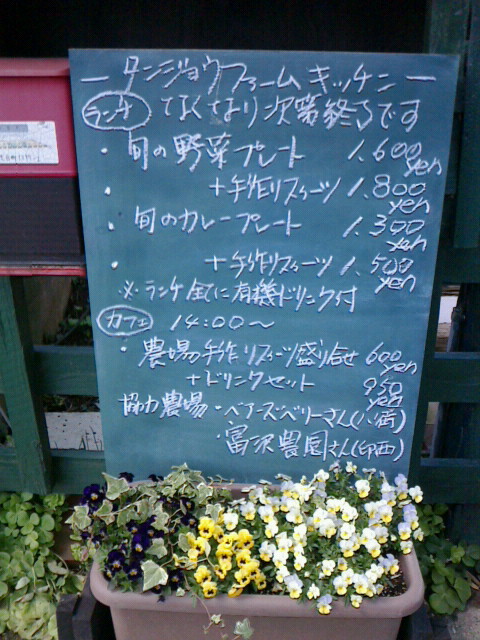 ― タンジョウファームキッチン ―
ランチ なくなり次第終了です
・旬の野菜プレート 1.600yen
・＋手作りスイーツ 1.800yen
・旬のカレープレート 1.300yen
・＋手作りスイーツ 1.500yen
※ランチ全てに有機ドリンク付
カフェ 14:00〜
・農場手作りスイーツ盛り合せ 600yen
＋ドリンクセット 950yen
協力農場・ベアーズベリーさん(八街)
・富沢農園さん(印西)